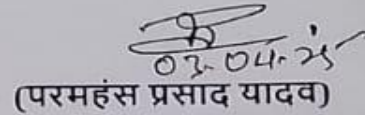 03.04.25
(परमहंस प्रसाद यादव)